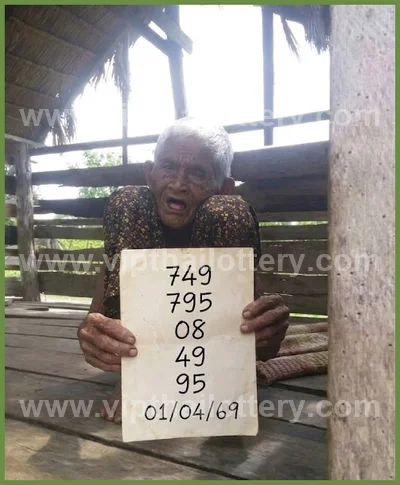 www.vipthailottery.com
www.vipthailottery.com
749
795
08
49
95
01/04/69
www.vipthailottery.com